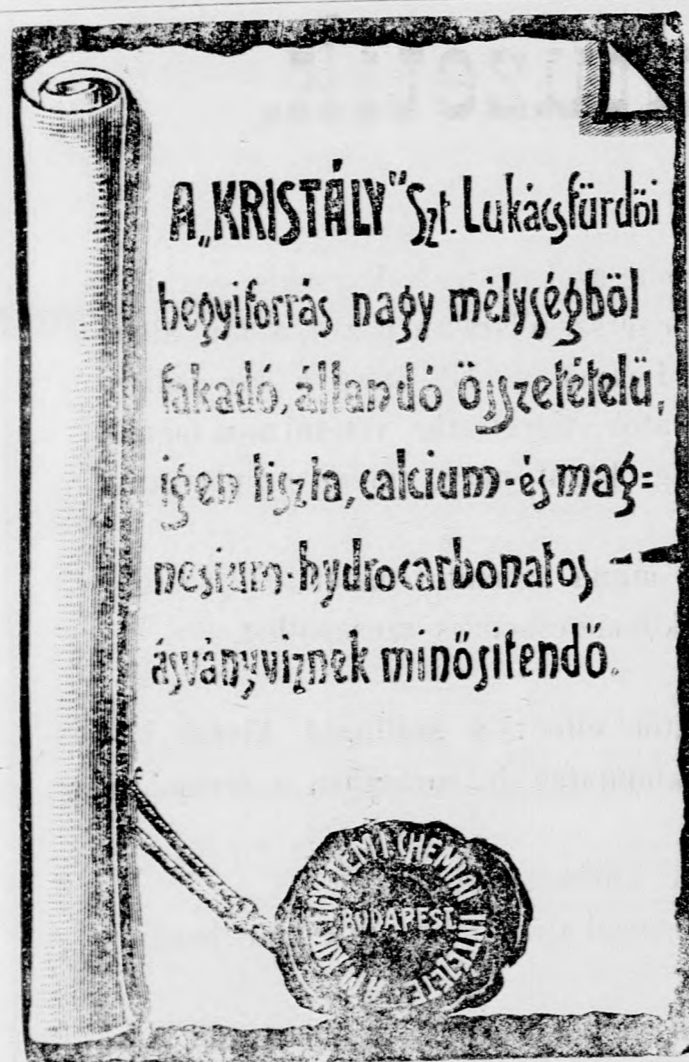 A „KRISTÁLY" Szt. Lukácsfürdői
hegyiforrás nagy mélységből
fakadó, állandó összetételü,
igen tiszta, calcium- és mag=
nesium-hydrocarbonatos
ásványviznek minősitendő.
A M. KIR. EGYETEM I. CHEMIAI INTÉZETE
BUDAPEST.